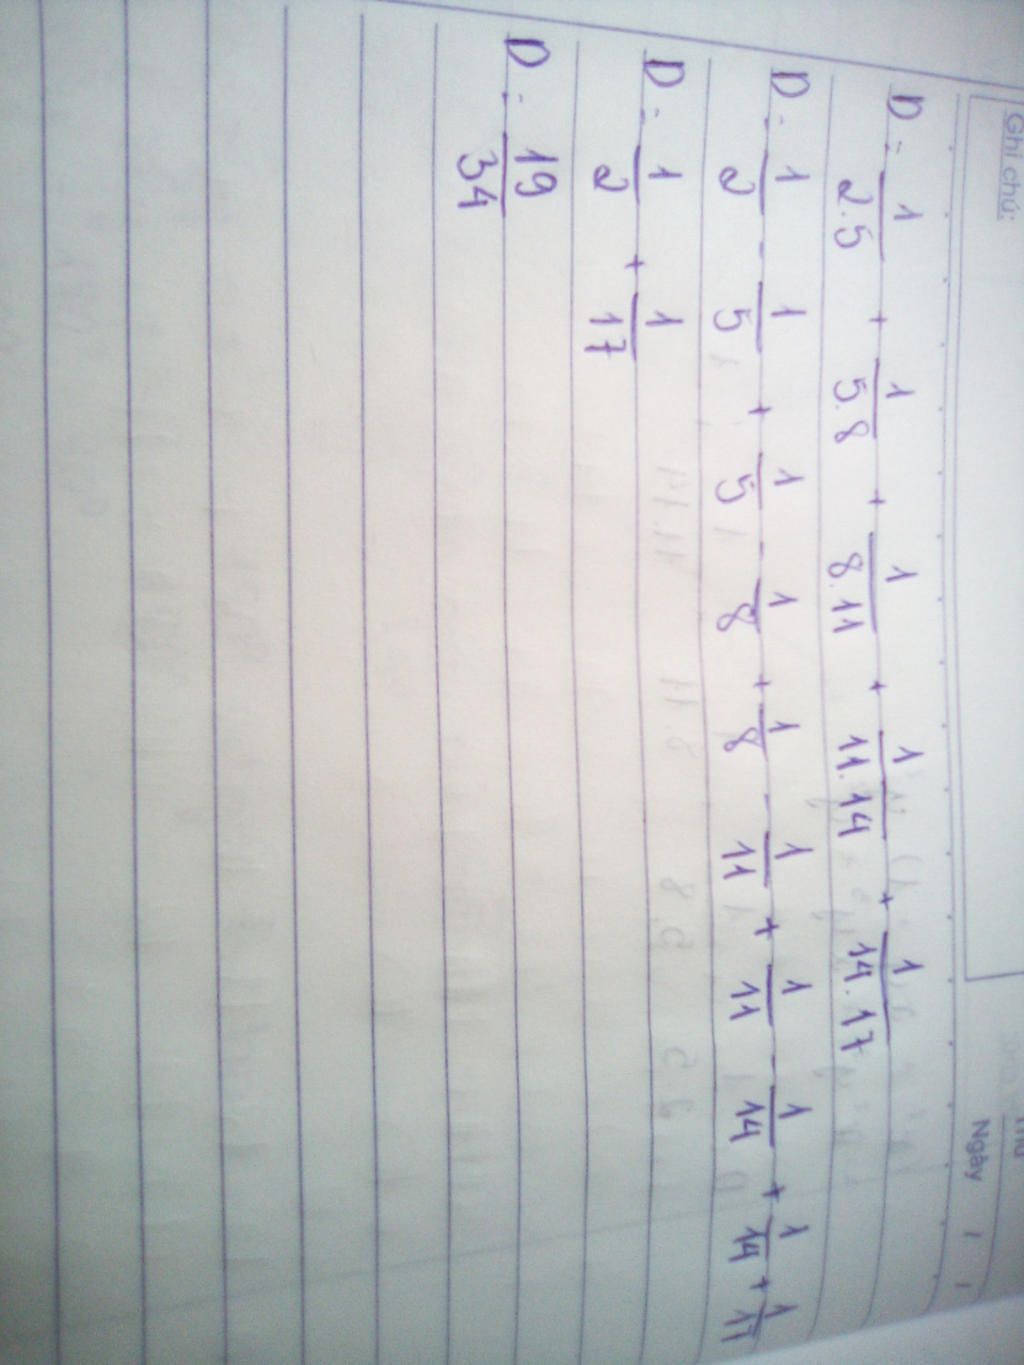 Ghi chú:
Ngày / /
D = 1/2.5 + 1/5.8 + 1/8.11 + 1/11.14 + 1/14.17
D = 1/2 - 1/5 + 1/5 - 1/8 + 1/8 - 1/11 + 1/11 - 1/14 + 1/14 + 1/17
D = 1/2 + 1/17
D = 19/34